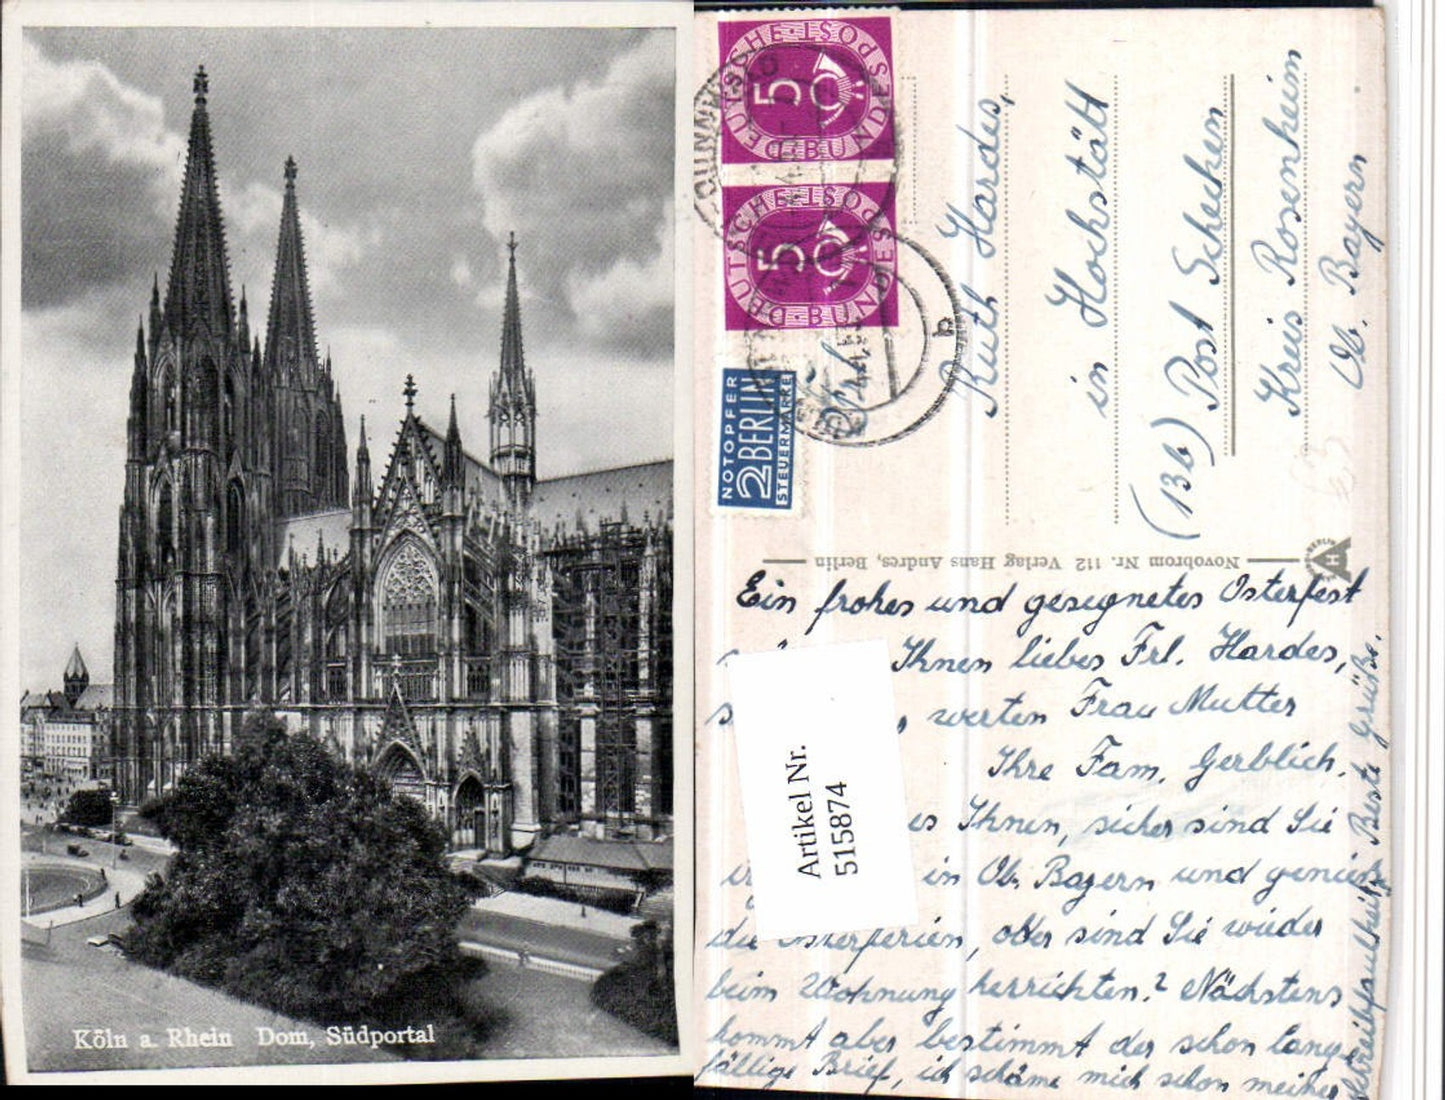 Köln a. Rhein Dom, Südportal
DEUTSCHE BUNDESPOST
5
DEUTSCHE BUNDESPOST
5
NOTOPFER
2 BERLIN
STEUERMARKE
Ruth Hardes,
in Hochstätt
(13b) Post Schechen
Kreis Rosenheim
Ob. Bayern
Novobrom Nr. 112 Verlag Hans Andres, Berlin
Ein frohes und gesegnetes Osterfest
Ihnen liebes Frl. Hardes,
werten Frau Mutter
Ihre Fam. Gerblich.
es Ihnen, sicher sind Sie
in Ob. Bayern und
die Osterferien, oder sind Sie wieder
beim Wohnung herrichten? Nächstens
kommt aber bestimmt der schon lang
fällige Brief, ich schäme mich schon meiner
Schreibfaulheit. Beste Grüße.
Artikel Nr.
515874